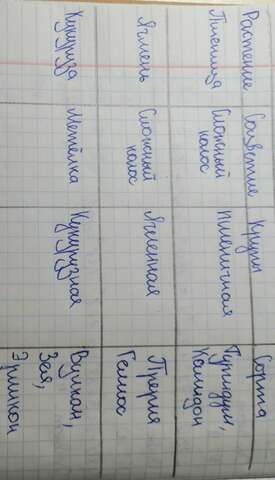 Растение Соцветие Крупы Сорта
Пшеница Сложный Пшеничная
колос Калидон
Ячмень Сложный Ячменная Прерия
колос Гелиос
Кукуруза Метёлка Кукурузная Вулкан,
Зея,
Эрликон